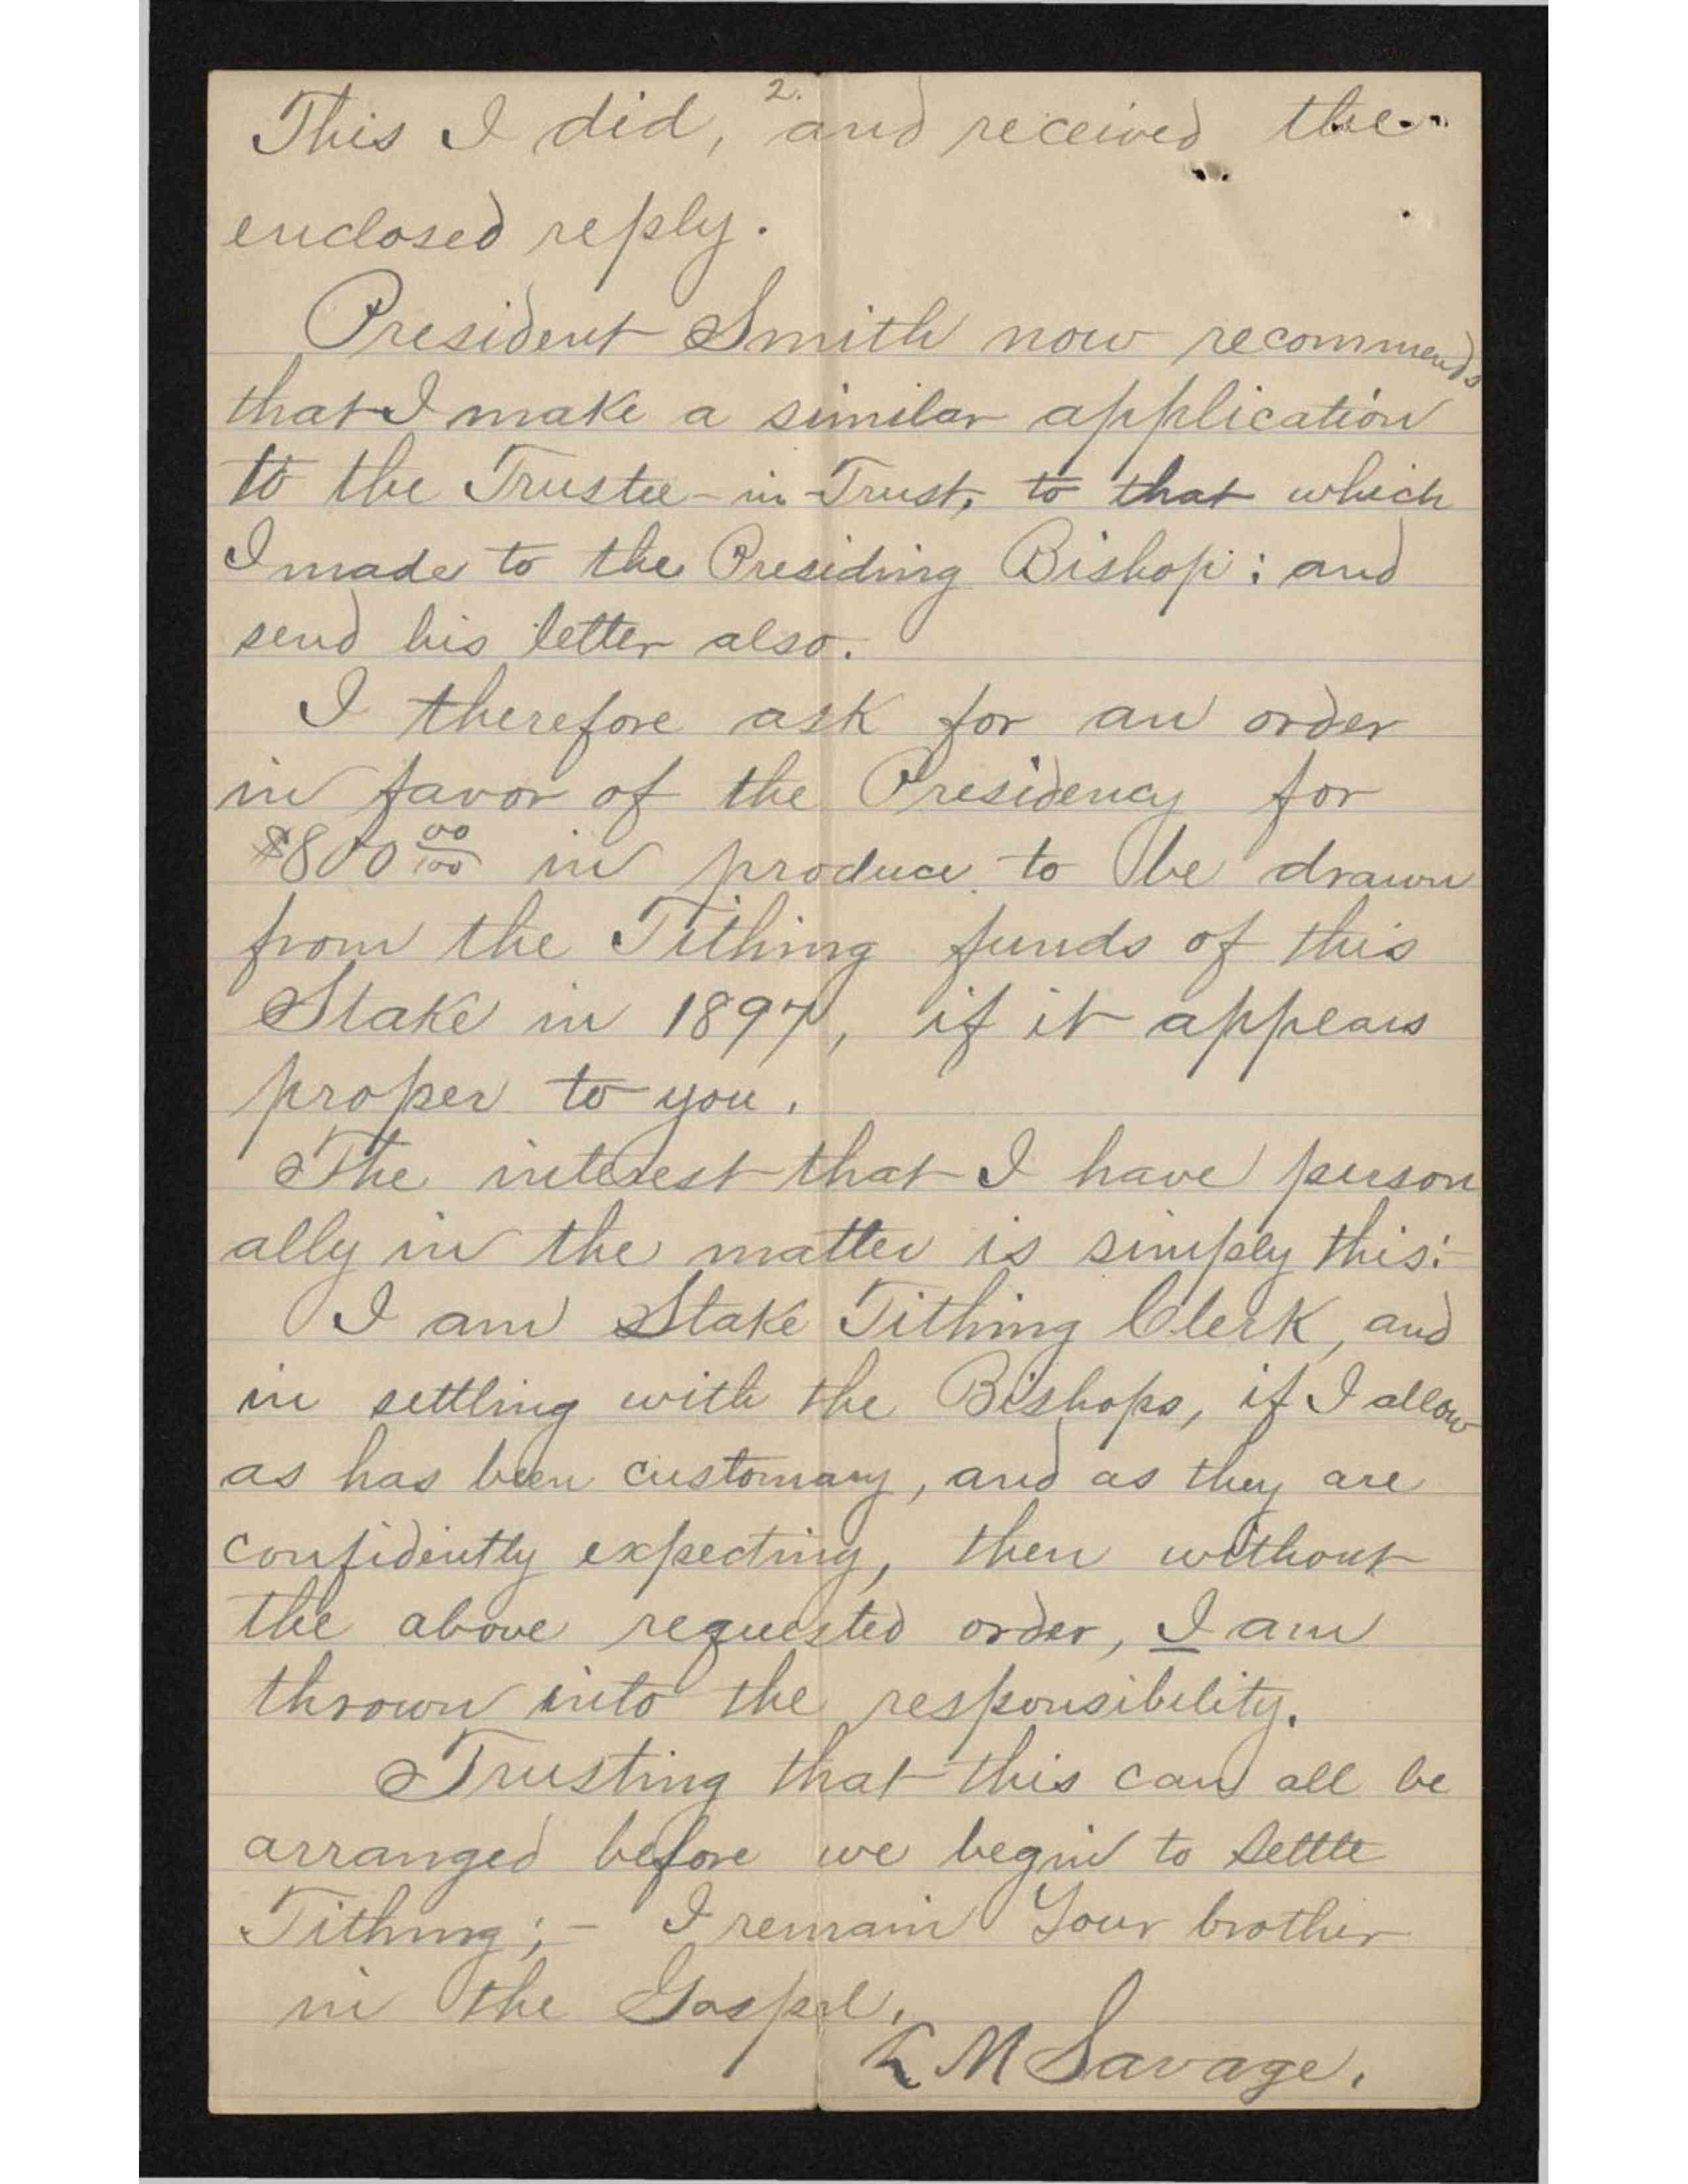 2.
This I did, and received the
enclosed reply.
President Smith now recommends
that I make a similar application
to the Trustee-in-Trust, to that which
I made to the Presiding Bishop; and
send his letter also.
I therefore ask for an order
in favor of the Presidency for
$800 00/100 in produce to be drawn
from the Tithing funds of this
Stake in 1897, if it appears
proper to you.
The interest that I have person
ally in the matter is simply this:
I am Stake Tithing Clerk, and
in settling with the Bishops, if I allow
as has been customary, and as they are
confidently expecting, then without
the above requested order, I am
thrown into the responsibility.
Trusting that this can all be
arranged before we begin to settle
Tithing;- I remain Your brother
in the Gospel,
L M Savage.